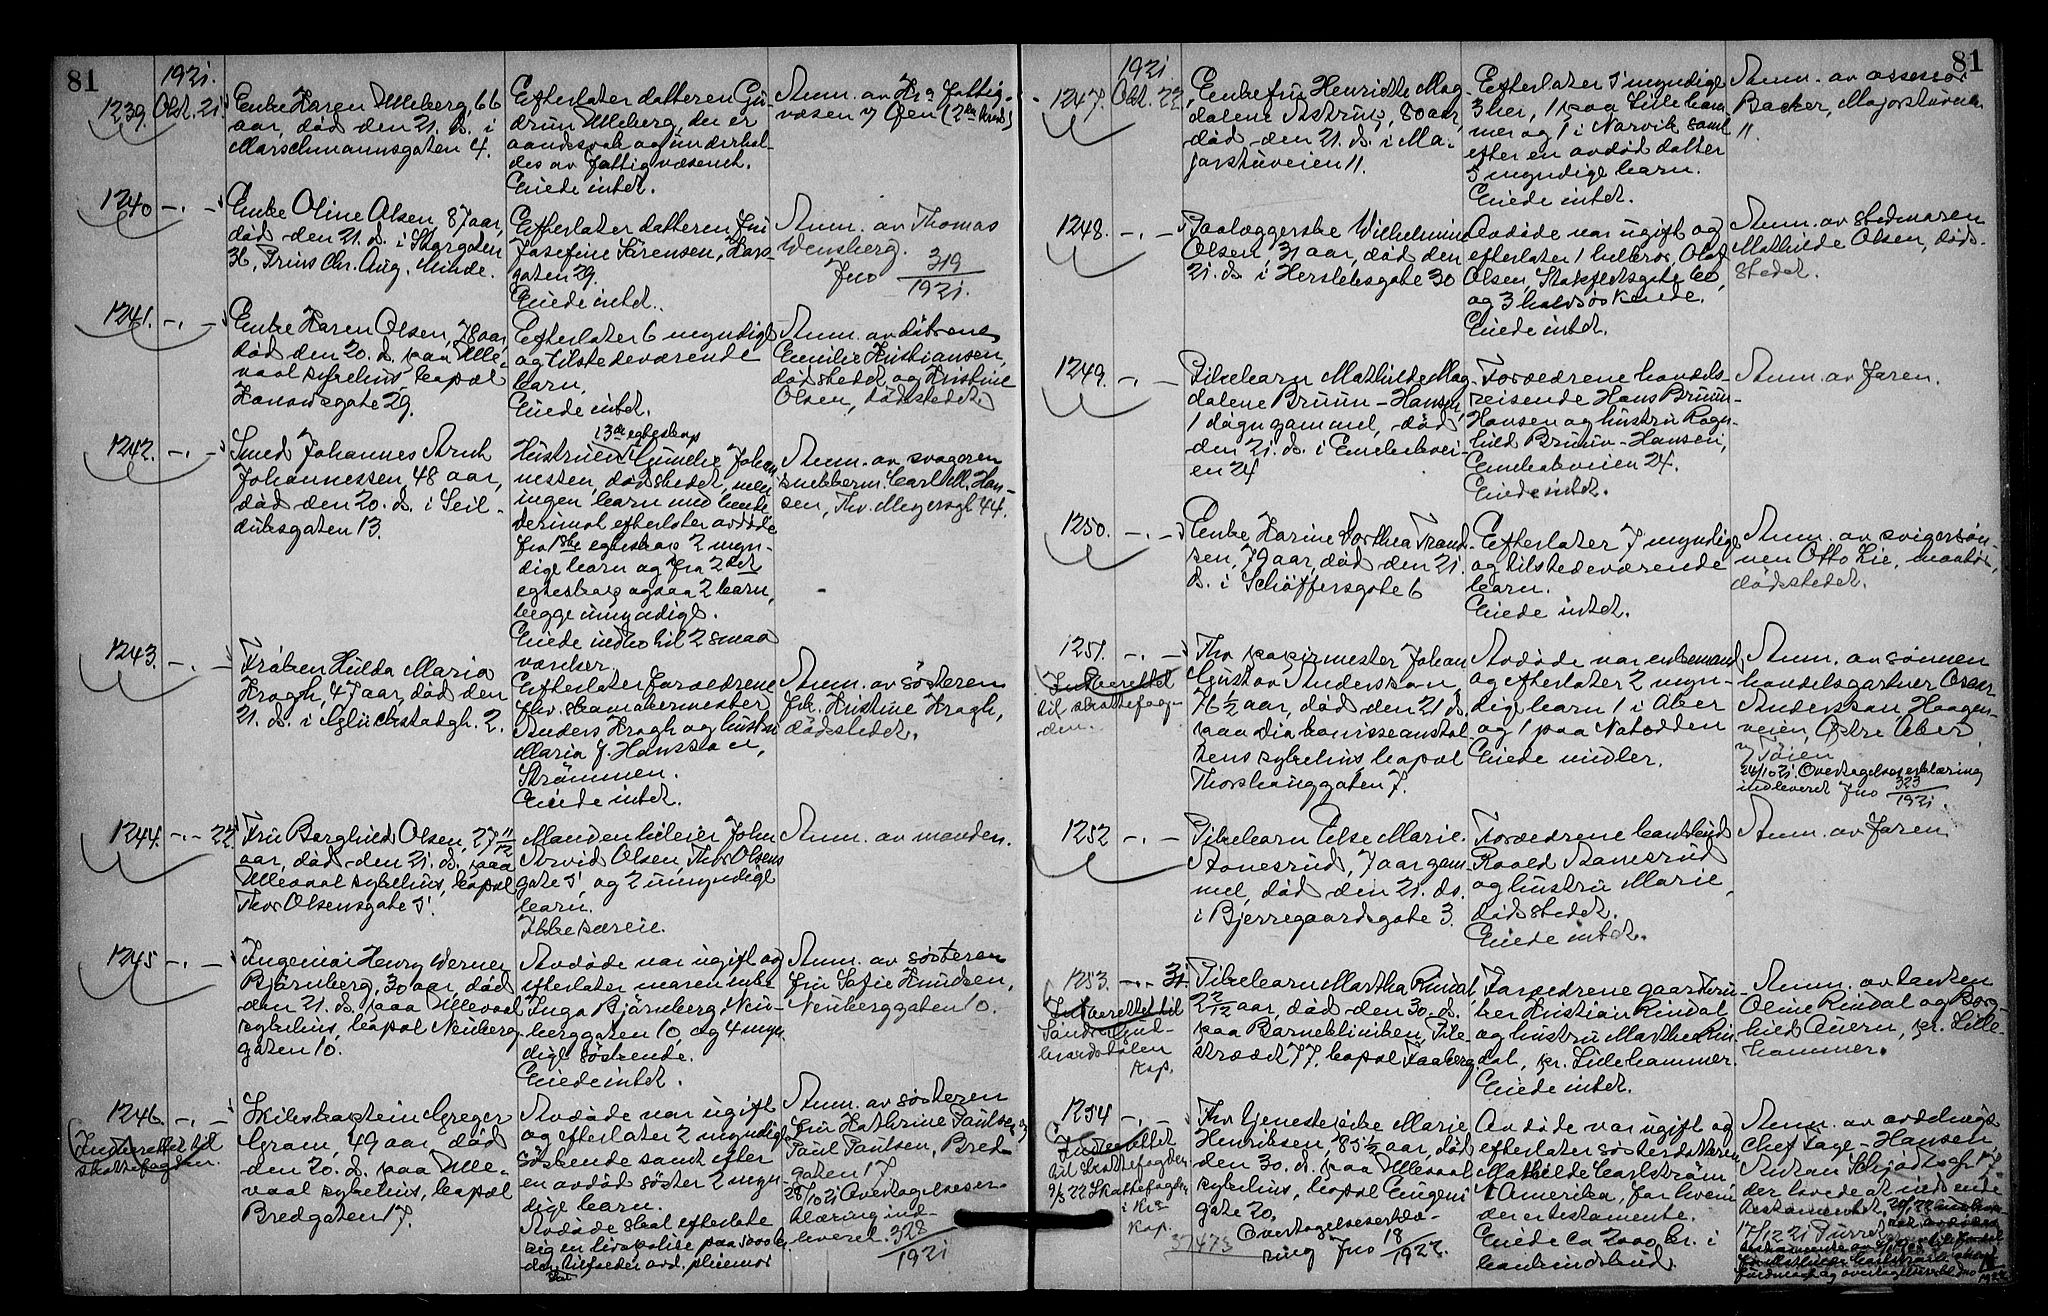 81
1921.
1239. Okt. 21.
Enke Karen Ulleberg, 66
aar, død den 21. ds. i
Marschmannsgaten 4.
Efterlater datteren Gu-
drun Ulleberg, der er
aandssvak og underhol-
des av Fattigvæsenet.
Eiede intet.
Anm. av Kra Fattig-
væsen v/ Øen
1240 -.-
Enke Oline Olsen, 87 aar,
død den 21. ds. i Storgaten
36, Prins Chr. Aug. Minde.
Efterlater datteren Fru
Josefine Sørensen,
gaten 29.
Eiede intet.
Anm. av Thomas
Wensberg.
Jno 319
1921.
1241. -.-
Enke Karen Olsen, 78 aar,
død den 20. ds. paa Ulle-
vaal sykehus, bopæl
gate 29.
Efterlater 6 myndige
og tilstedeværende
barn.
Eiede intet.
Anm. av døtrene
Emilie Kristiansen,
dødsstedet og Kristine
Olsen, dødsstedet.
1242. -.-
Smed Johannes Arnt
Johannessen, 48 aar,
død den 20. ds. i Seil-
duksgaten 13.
i 3die egteskap
Hustruen Gunelie Johan-
nessen, dødsstedet, men
ingen barn med hende
derimot efterlater avdøde
fra 1ste egteskap 2 myn-
dige barn og fra 2det
egteskap ogsaa 2 barn,
begge umyndige.
Eiede indbo til 2 smaa
værelser.
Anm. av svogeren
snekkerm. Carl M. Han-
sen, Thv. Meyersgt 44.
1243. -.-
Frøken Hulda Maria
Kragh, 47 aar, død den
21. ds. i Glückstadgt. 2.
Efterlater forældrene
fhv. skomakermester
Anders Kragh og hustru
Maria f. Hansson,
Strømmen.
Eiede intet.
Anm. av søsteren
frk. Kristine Kragh,
dødsstedet.
1244. -.- 22.
Fru Borghild Olsen, 27 11/12
aar, død den 21. ds. paa
Ullevaal sykehus, bopæl
Thor Olsensgate 5.
Manden bileier John
Arvid Olsen, Thor Olsens
gate 5, og 2 umyndige
barn.
Ikke særeie.
Anm. av manden.
1245 -.-
Ingeniør Henry Werner
Bjørnberg, 30 aar, død
den 21. ds. paa Ullevaal
sykehus, bopæl Neuberg-
gaten 10.
Avdøde var ugift og
efterlater moren enke
Inga Bjørnberg, Neu-
berggaten 10, og 4 myn-
dige søskende.
Eiede intet.
Anm. av søsteren
fru Sofie Knudsen,
Neuberggaten 10.
1246. -.-
Indberettet til
skattefogden.
Skibskaptein Greger
Gram, 49 aar, død
den 20. ds. paa Ulle-
vaal sykehus, bopæl
Bredgaten 17.
Avdøde var ugift
og efterlater 2 myndige
søskende samt efter
en avdød søster 2 myn-
dige barn.
Avdøde skal efterlate
sig en livspolise paa 5000 kr
der skal tilfalder avd.
Anm. av søsteren
fru Kathrine Paulsen v/
Paul Paulsen, Bred-
gaten 17.
28/10 21 Overtagelseser-
klæring ind-
leveret. 328
1921
81
1921
1247. Okt. 22.
Enkefru Henriette Mag-
dalene Astrup, 80 aar,
død den 21. ds. i Ma-
jorstuveien 11.
Efterlater 5 myndige
3 her, 1 paa Lilleham-
mer og 1 i Narvik samt
efter en avdød datter
5 myndige barn.
Eiede intet.
Anm. av assessor
Backer, Majorstuvn.
11.
1248. -.-
Paalæggerske Wilhelmine
Olsen, 31 aar, død den
21. ds. i Herslebsgate 30
Avdøde var ugift og
efterlater 1 helbror, Olaf
Olsen, Stolpfedtsgate
og 3 halvsøskende.
Eiede intet.
Anm. av stedmoren
Mathilde Olsen, døds-
stedet.
1249. -.-
Pikebarn Mathilde Mag-
dalene Bruun-Hansen,
1 døgn gammel, død
den 21. ds. i Enebakvei-
en 24
Forældrene handels-
reisende Hans Bruun-
Hansen og hustru Ragn-
hild Bruun-Hansen,
Enebakveien 24.
Eiede intet.
Anm. av faren.
1250. -.-
Enke Karine Dorthea Trand-
sen, 79 aar, død den 21.
ds. i Schøffersgate 6
Efterlater 7 myndige
og tilstedeværende
barn.
Eiede intet.
Anm. av svigersøn-
nen Otto Lie, montør,
dødsstedet.
1251. -.-
Indberettet
til skattefog-
den.
Fhv. papirmester Johan
Gustav Andersson,
76 1/2 aar, død den 21. ds.
paa Diakonisseanstal-
tens sykehus, bopæl
Thorshauggaten 7.
Avdøde var enkemand
og efterlater 2 myn-
dige barn 1 i Aker
og 1 paa Notodden
Eiede midler.
Anm. av sønnen
handelsgartner Oscar
Andersson, Haagen-
veien, Østre Aker
v/ Tøien
24/10 21 Overtagelseserklæring
indleveret Jno 323
1921.
1252 -.-
Pikebarn Else Marie
Aanesrud, 7 aar gam-
mel, død den 21. ds.
i Bjerregaardsgate 3.
Forældrene
Roald Aanesrud
og hustru Marie,
dødsstedet.
Eiede intet.
Anm. av faren
1253. -.- 31.
Indberettet til
Søndre Gud-
brandsdalen
Kap.
Pikebarn Martha Rindal,
død den 30. ds.
paa Barneklinikken, Pile-
strædet 77, bopæl Faaberg.
Forældrene gaardbru-
ker Kristian Rindal
og hustru Marthe Rin-
dal, pr. Lillehammer.
Eiede intet.
Anm. av tanten
Oline Rindal og Borg-
hild Auern, pr. Lille-
hammer.
1254 -.-
Indberettet
til Skattefogden
9/3 22 Skattefogden
i Kra
Kap.
37473
Fhv. tjenestepike Marie
Henriksen, 85 1/2 aar, død
den 30. ds. paa Ullevaal
sykehus, bopæl Eugenies
gate 20.
Overtagelseserklæ-
ring Jno 18
1922.
Avdøde var ugift og
efterlater søsterdatteren
Mathilde Carlstrøm,
i Amerika, for hvem
der er testamente.
Eiede ca 2000 kr. i
bankindskud.
Anm. av avdelings-
chef Tage-Hansen
Anton Schjødtsgt.
der lovede at indsende
testamentet.
17/12 21 Purret